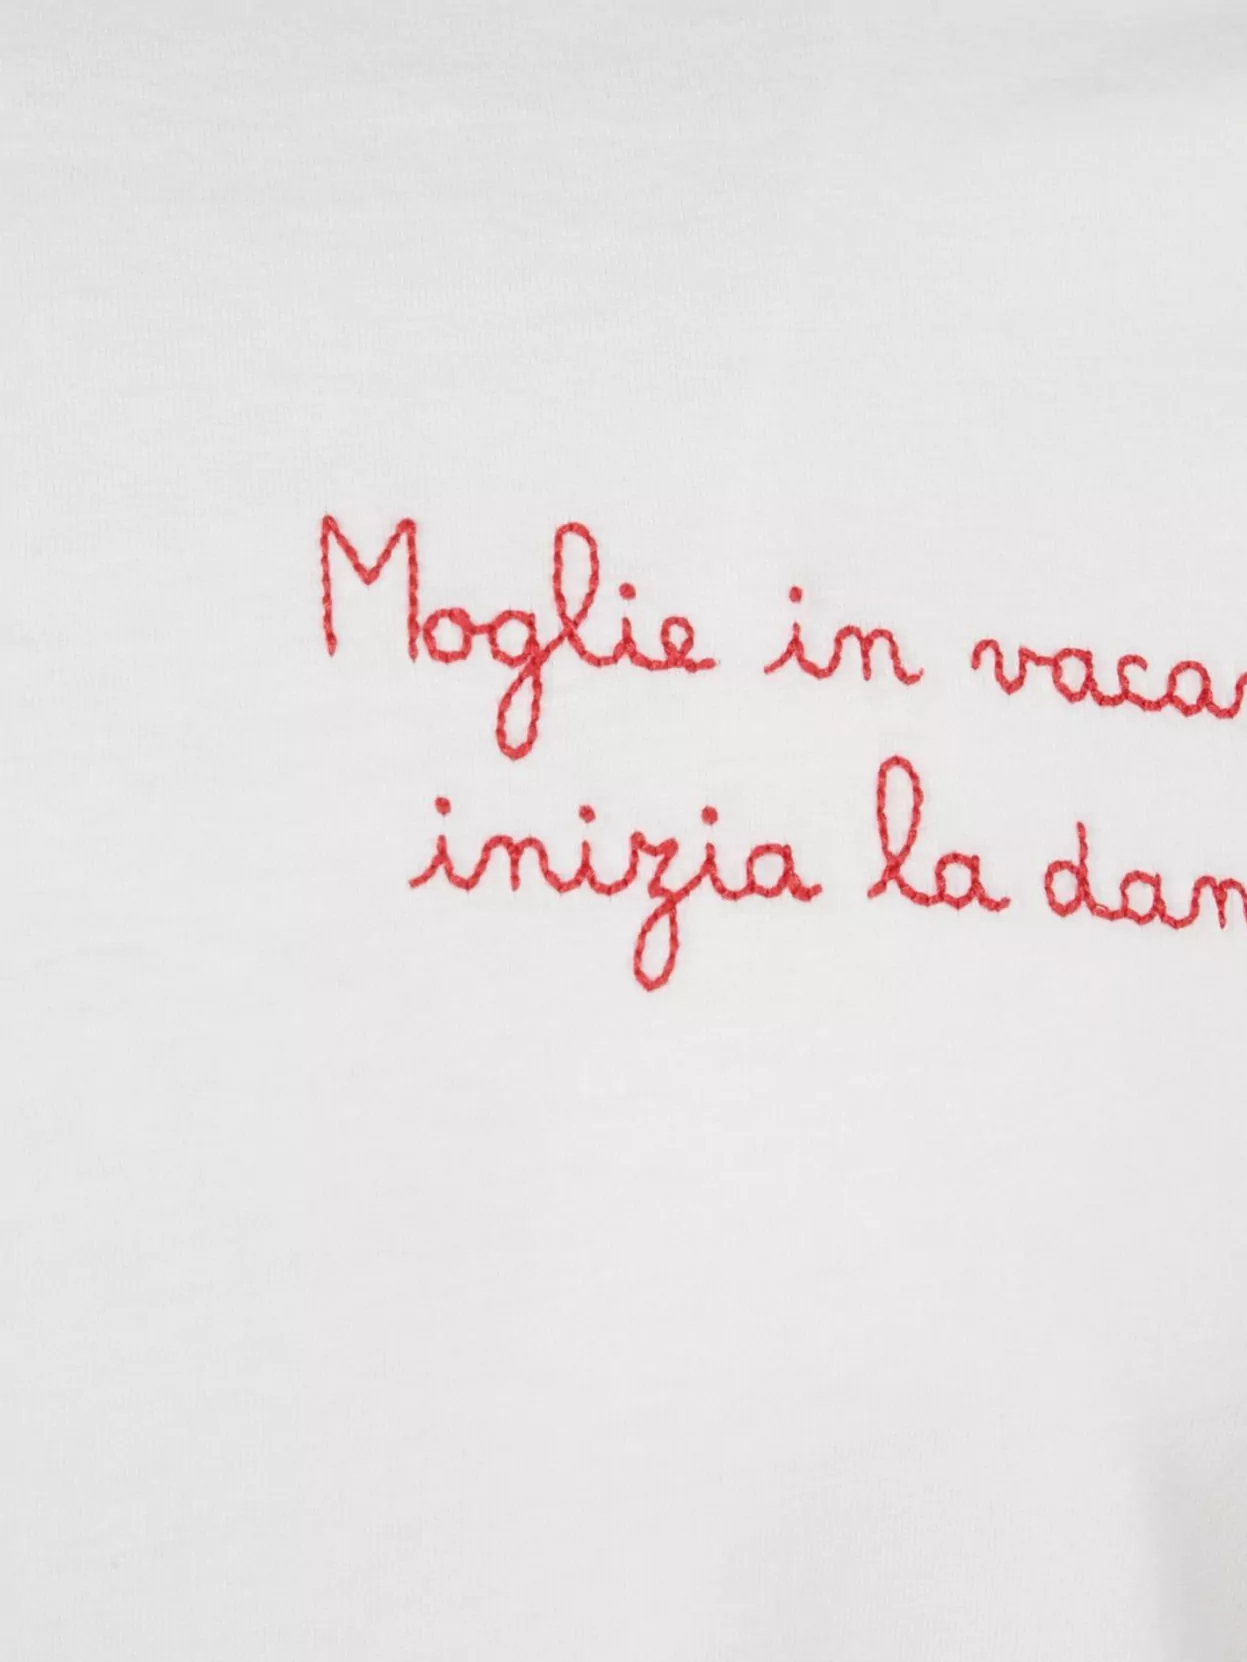 Moglie in vacan
inizia la dan